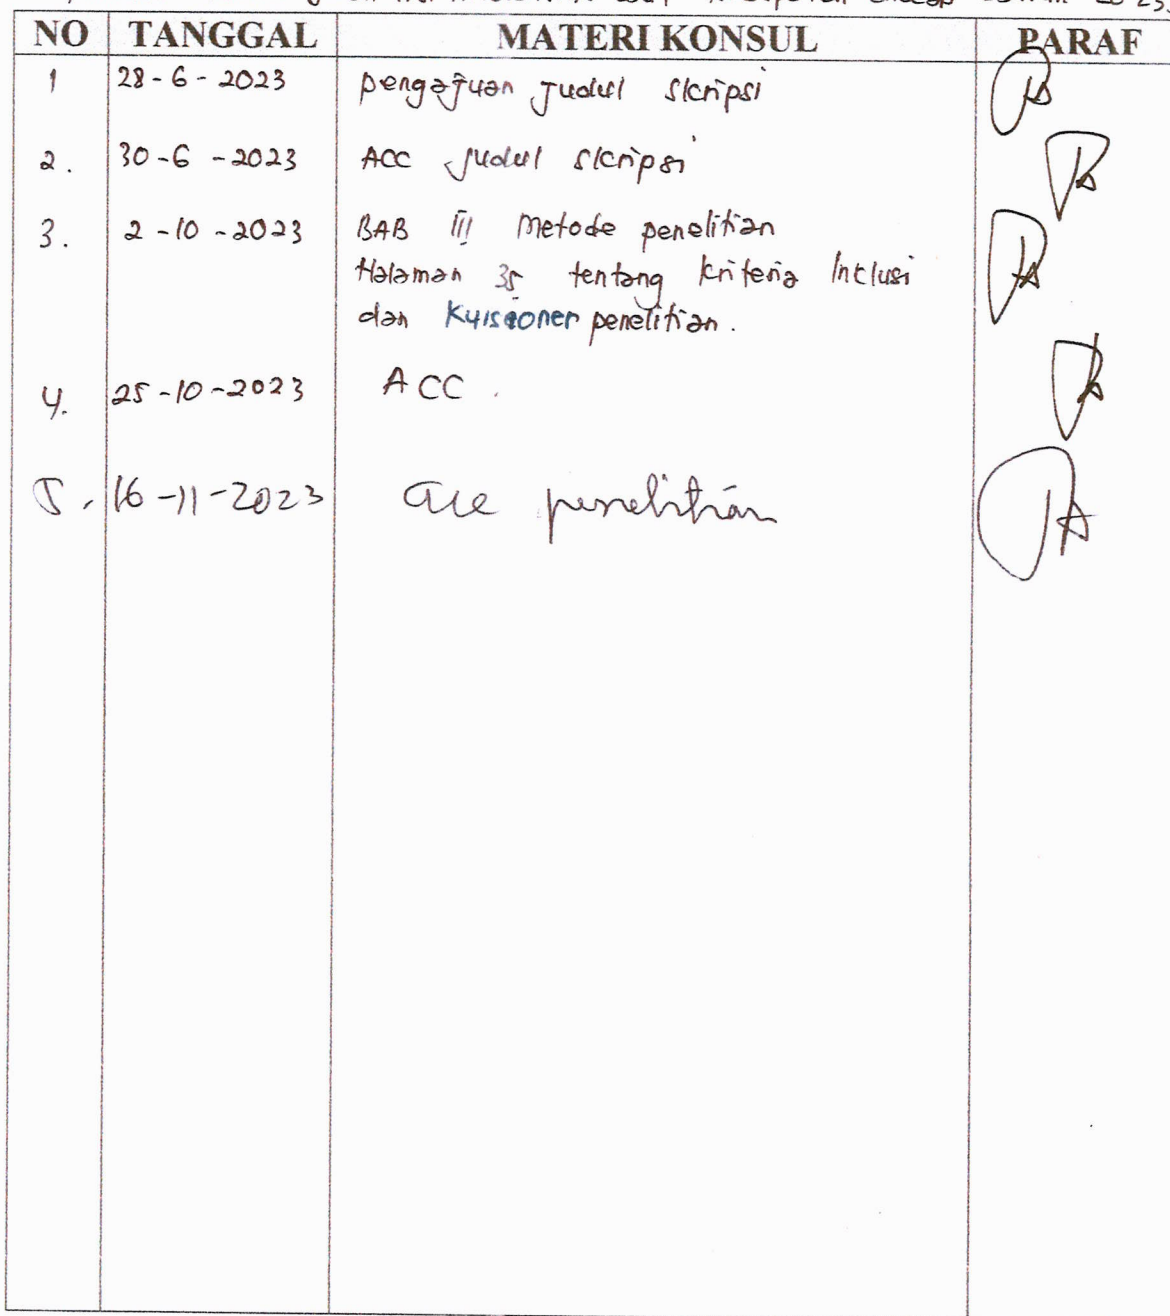 NO TANGGAL MATERI KONSUL PARAF
1 28-6-2023 pengajuan Judul skripsi
2. 30-6-2023 ACC Judul skripsi
3. 2-10-2023 BAB III Metode penelitian
Halaman 35 tentang kriteria Inklusi
dan Kuisioner penelitian.
4. 25-10-2023 ACC.
5. 16-11-2023 acc penelitian